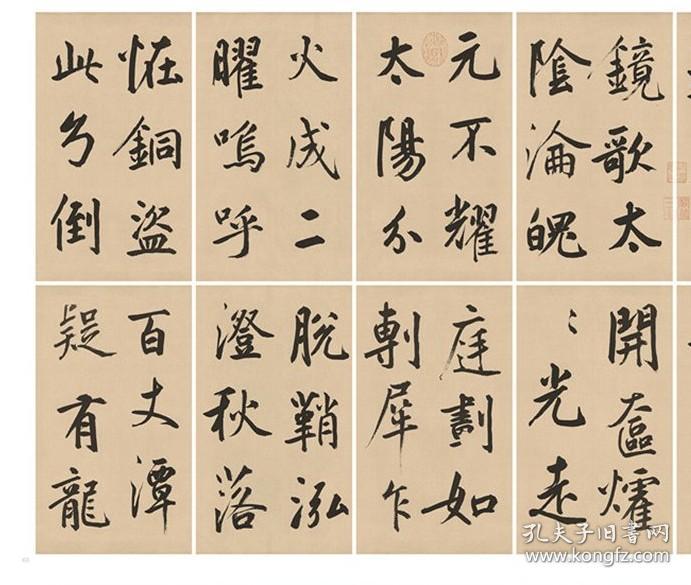 鏡歌太
陰淪魄
元不耀
太陽分
火成二
曜嗚呼
恠銅盜
此兮倒
開奩燿
〻光走
庭劃如
剸犀乍
脱鞘泓
澄秋落
百丈潭
疑有龍
孔夫子旧书网
www.kongfz.com